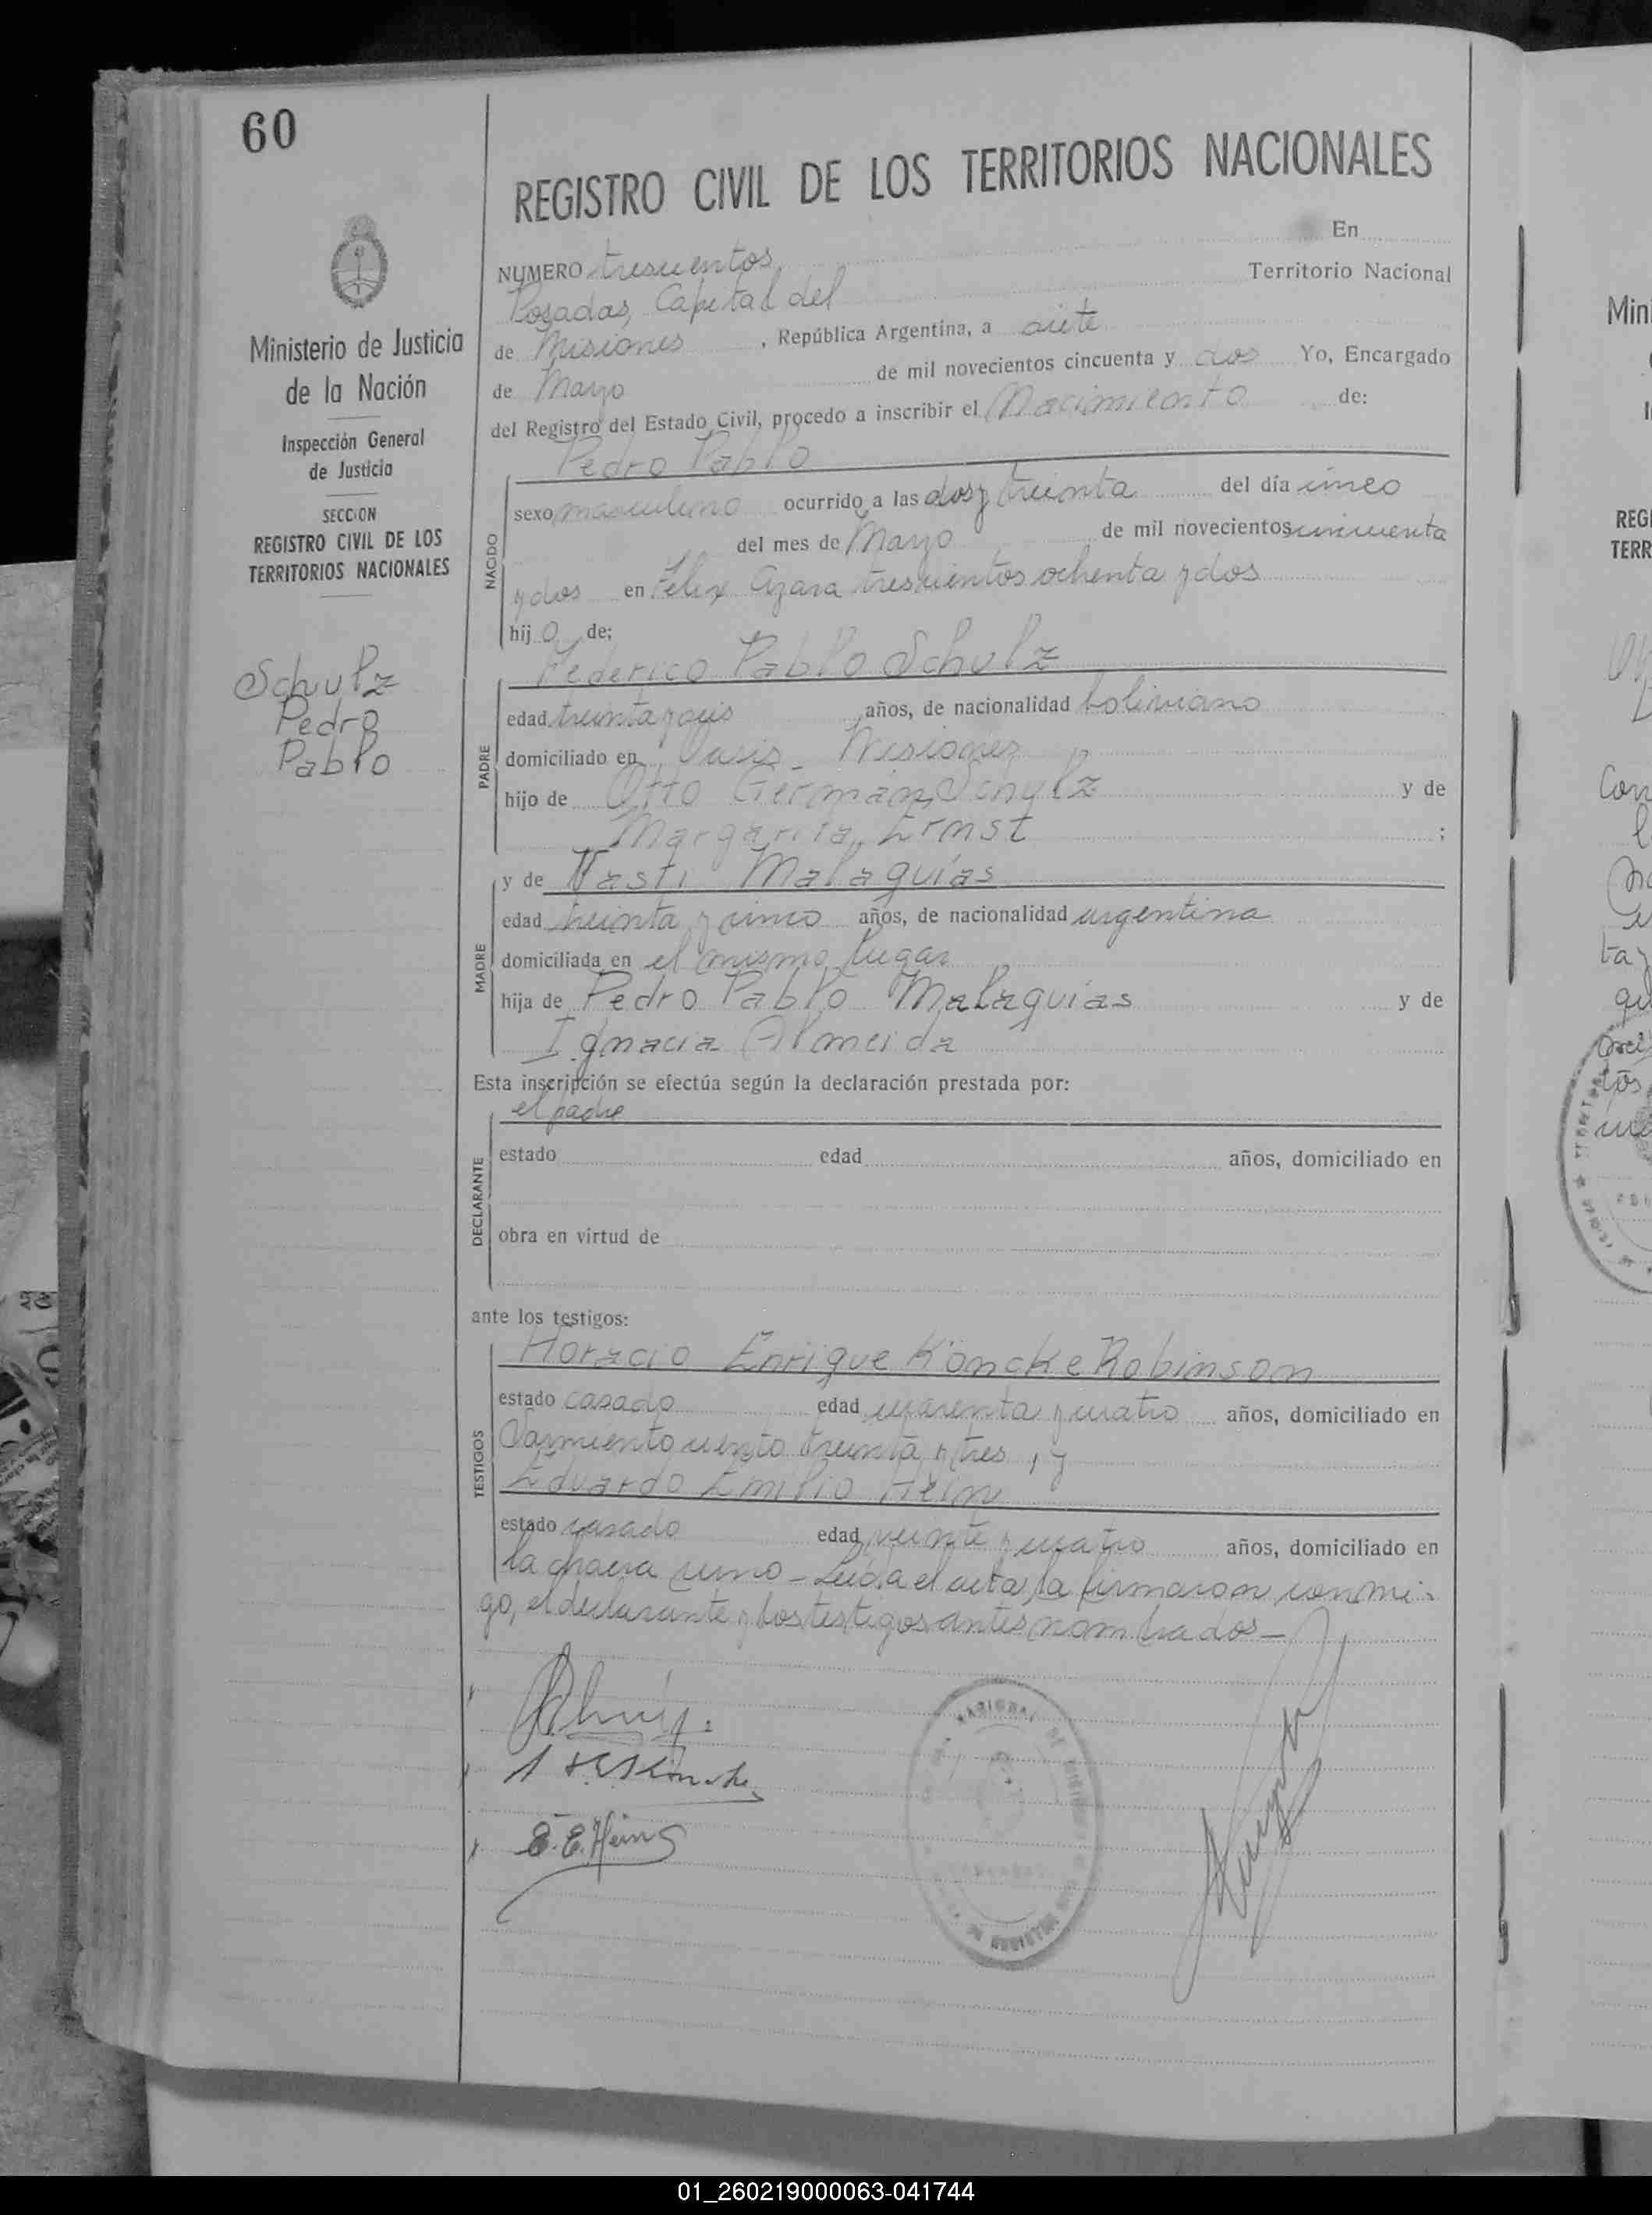 60
REGISTRO CIVIL DE LOS TERRITORIOS NACIONALES
Ministerio de Justicia
de la Nación
Inspección General
de Justicia
SECCION
REGISTRO CIVIL DE LOS
TERRITORIOS NACIONALES
Schulz
Pedro
Pablo
NUMERO trescientos En
Posadas, Capital del Territorio Nacional
de Misiones, República Argentina, a siete
de Mayo de mil novecientos cincuenta y dos Yo, Encargado
del Registro del Estado Civil, procedo a inscribir el Nacimiento de:
Pedro Pablo
NACIDO
sexo masculino ocurrido a las dos y treinta del día cinco
del mes de Mayo de mil novecientos cincuenta
y dos en Felix Azara trescientos ochenta y dos
hijo de:
Federico Pablo Schulz
PADRE
edad treinta y seis años, de nacionalidad boliviano
domiciliado en Oasis - Misiones
hijo de Otto Germán Schulz y de
Margarita Ernst ;
y de Vasti Malaguias
MADRE
edad treinta y cinco años, de nacionalidad argentina
domiciliada en el mismo lugar
hija de Pedro Pablo Malaguias y de
Ignacia Almeida
Esta inscripción se efectúa según la declaración prestada por:
el padre
DECLARANTE
estado edad años, domiciliado en
obra en virtud de
ante los testigos:
Horacio Enrique Köncke Robinson
TESTIGOS
estado casado edad cuarenta y cuatro años, domiciliado en
Sarmiento ciento treinta y tres, y
Eduardo Emilio Hein
estado casado edad veinte y cuatro años, domiciliado en
la chacra uno - Leída el acta, la firmaron conmi-
go, el declarante y los testigos antes nombrados -
E. E. Hein
01_260219000063-041744